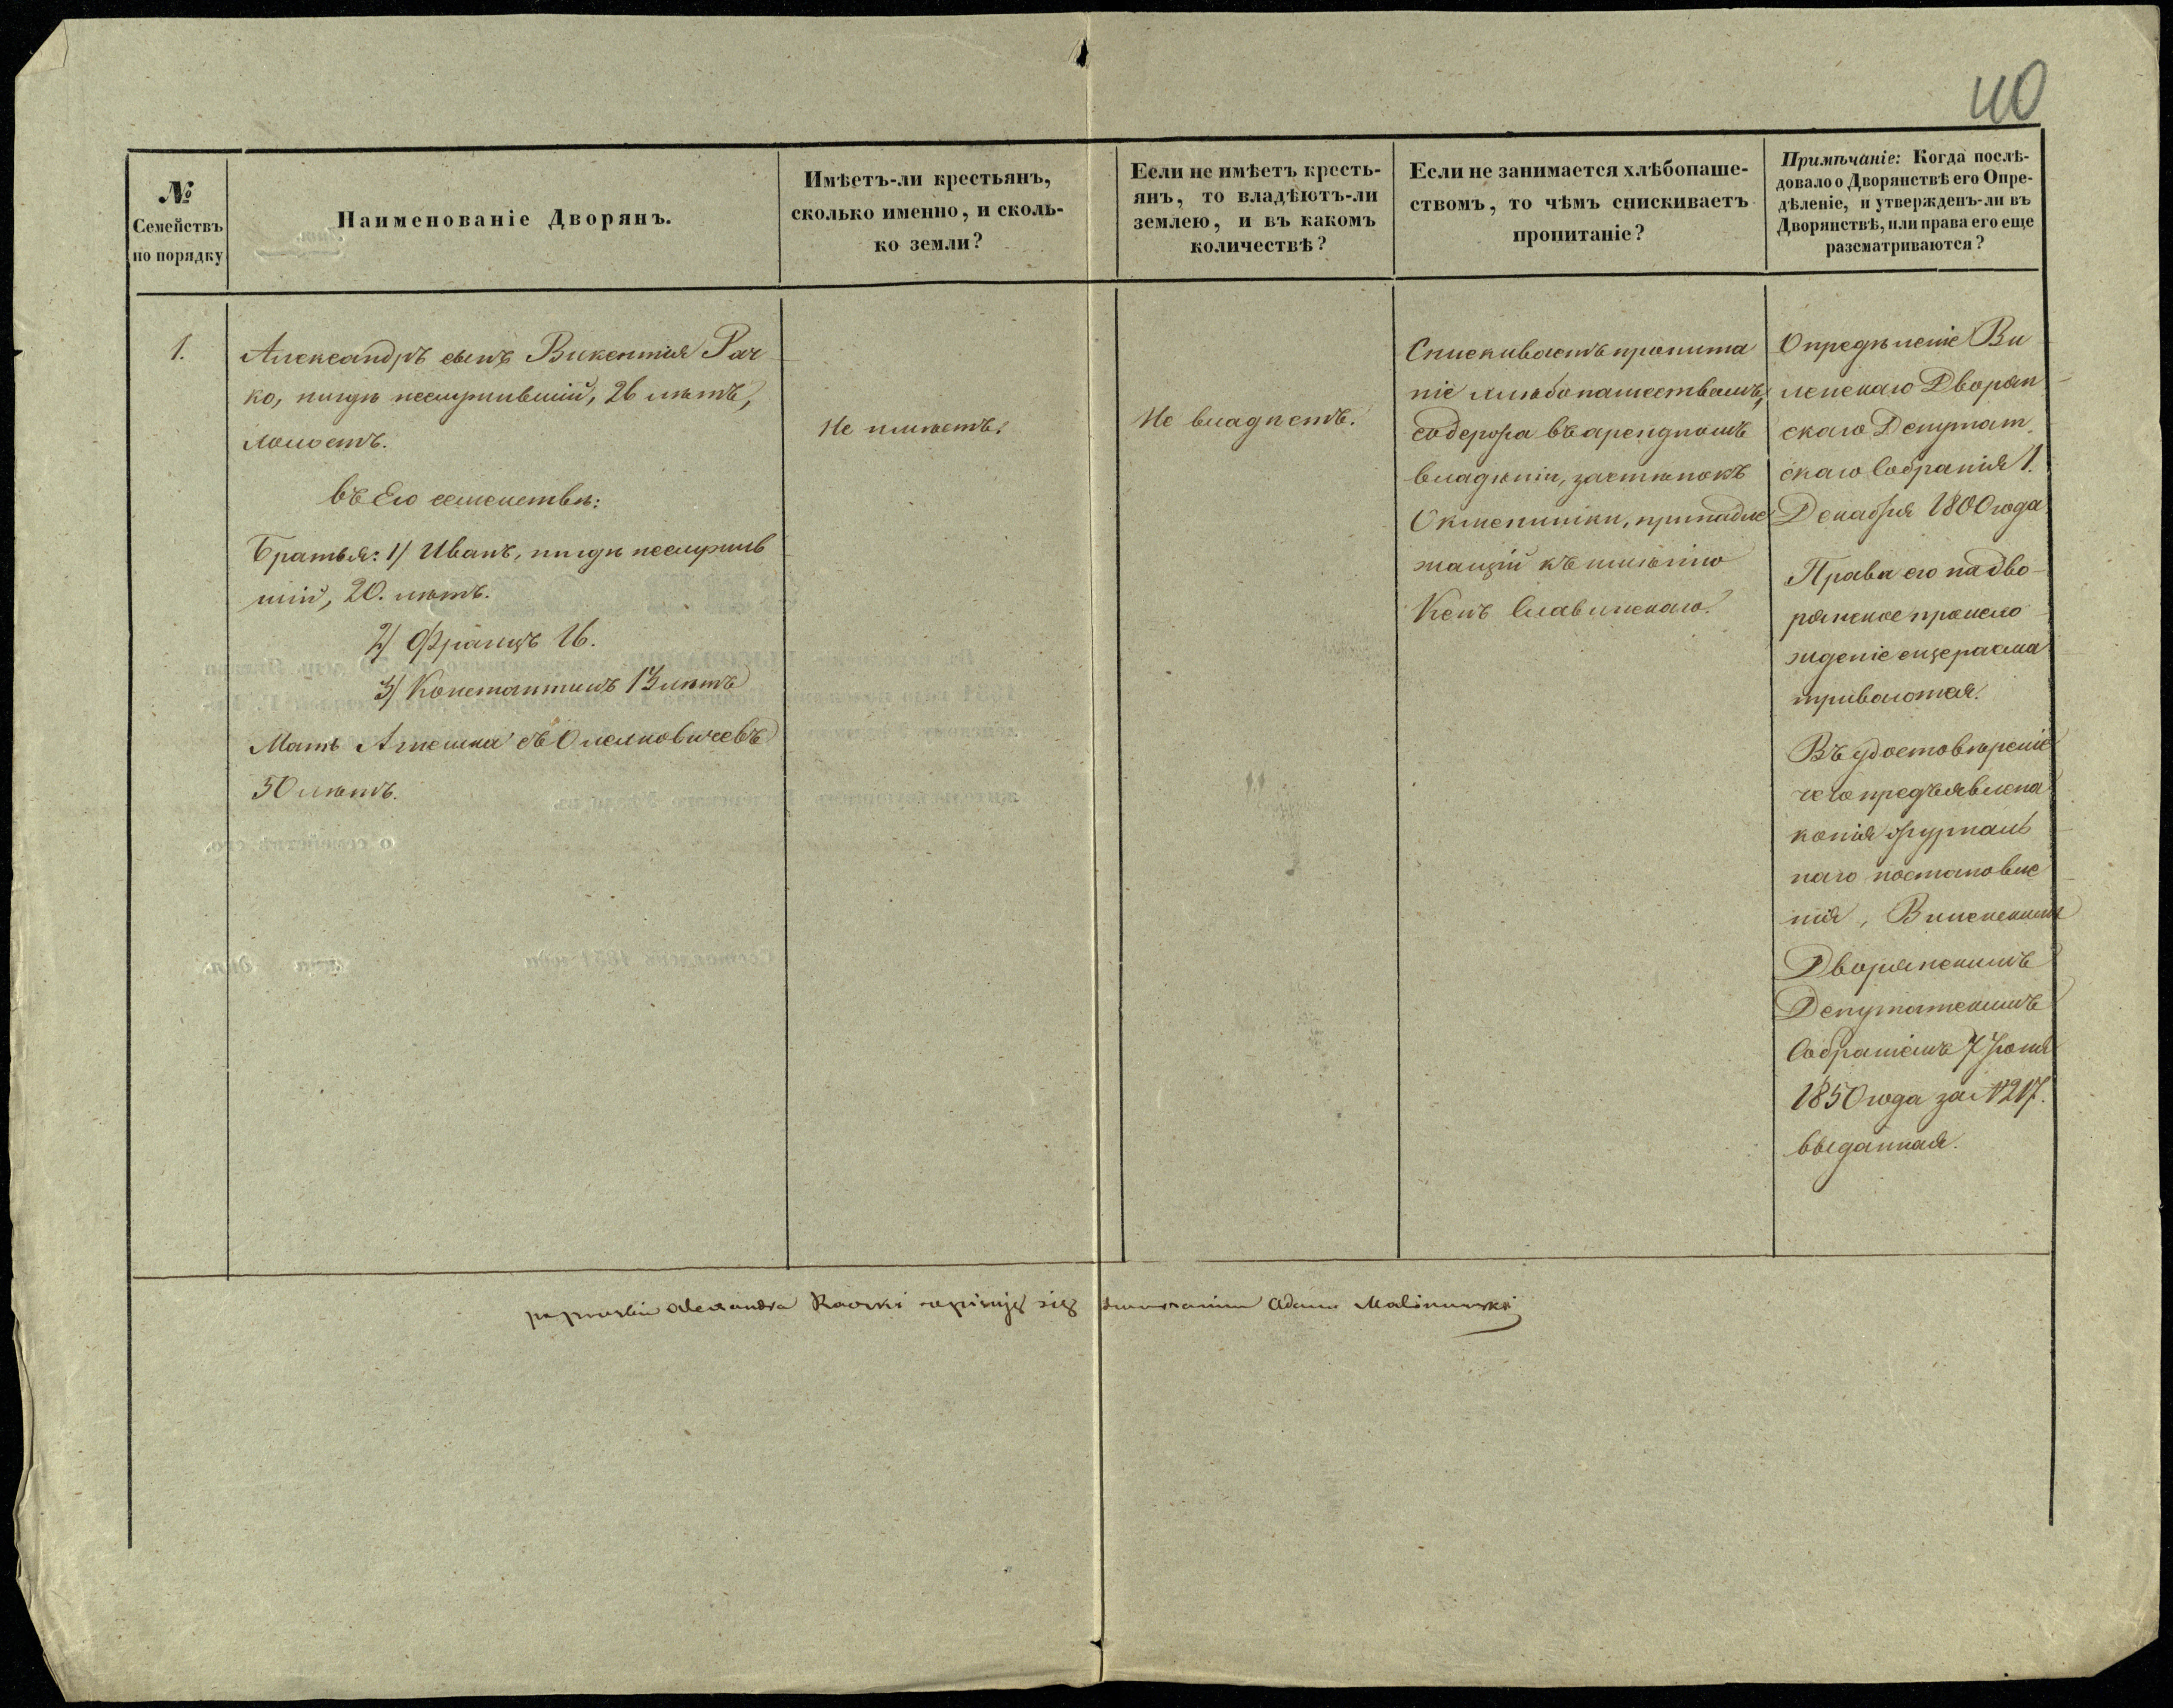 40
№
Семействъ
по порядку
Наименованіе Дворянъ.
Имѣетъ-ли крестьянъ,
сколько именно, и сколь-
ко земли?
Если не имѣетъ кресть-
янъ, то владѣютъ-ли
землею, и въ какомъ
количествѣ?
Если не занимается хлѣбопаше-
ствомъ, то чѣмъ снискиваетъ
пропитаніе?
Примѣчаніе: Когда послѣ-
довало о Дворянствѣ его Опре-
дѣленіе, и утвержденъ-ли въ
Дворянствѣ, или права его еще
разсматриваются?
1.
Александръ сынъ Викентія Рач
ко, нигдѣ неслужившій, 26 лѣтъ,
холостъ.
въ Его семействѣ:
Братья: 1/ Иванъ, нигдѣ неслужив
шій, 20. лѣтъ.
2/ Францъ 16.
3/ Константинъ 13 лѣтъ
Мать съ
50 лѣтъ.
Не имѣетъ.
Не владѣетъ.
Снискиваетъ пропита
ніе хлѣбопашествомъ,
содержа въ арендномъ
владѣніи, застѣнокъ
принадле
жащій къ имѣнію
Кенъ Славинскаго.
Опредѣленіе Ви
ленскаго Дворян
скаго Депутат
скаго Собранія 1.
Декабря 1800 года.
Права его на дво
рянское происхо
жденіе еще разсма
триваются.
Въ удостовѣреніе
чего предъявлена
копія журналь
наго постановле
нія, Виленскимъ
Дворянскимъ
Депутатскимъ
Собраніемъ 7 Іюня
1850 года за № 217.
выданная.
po prozbie Alexandra Raczki zapisuję się Adam Malinowski